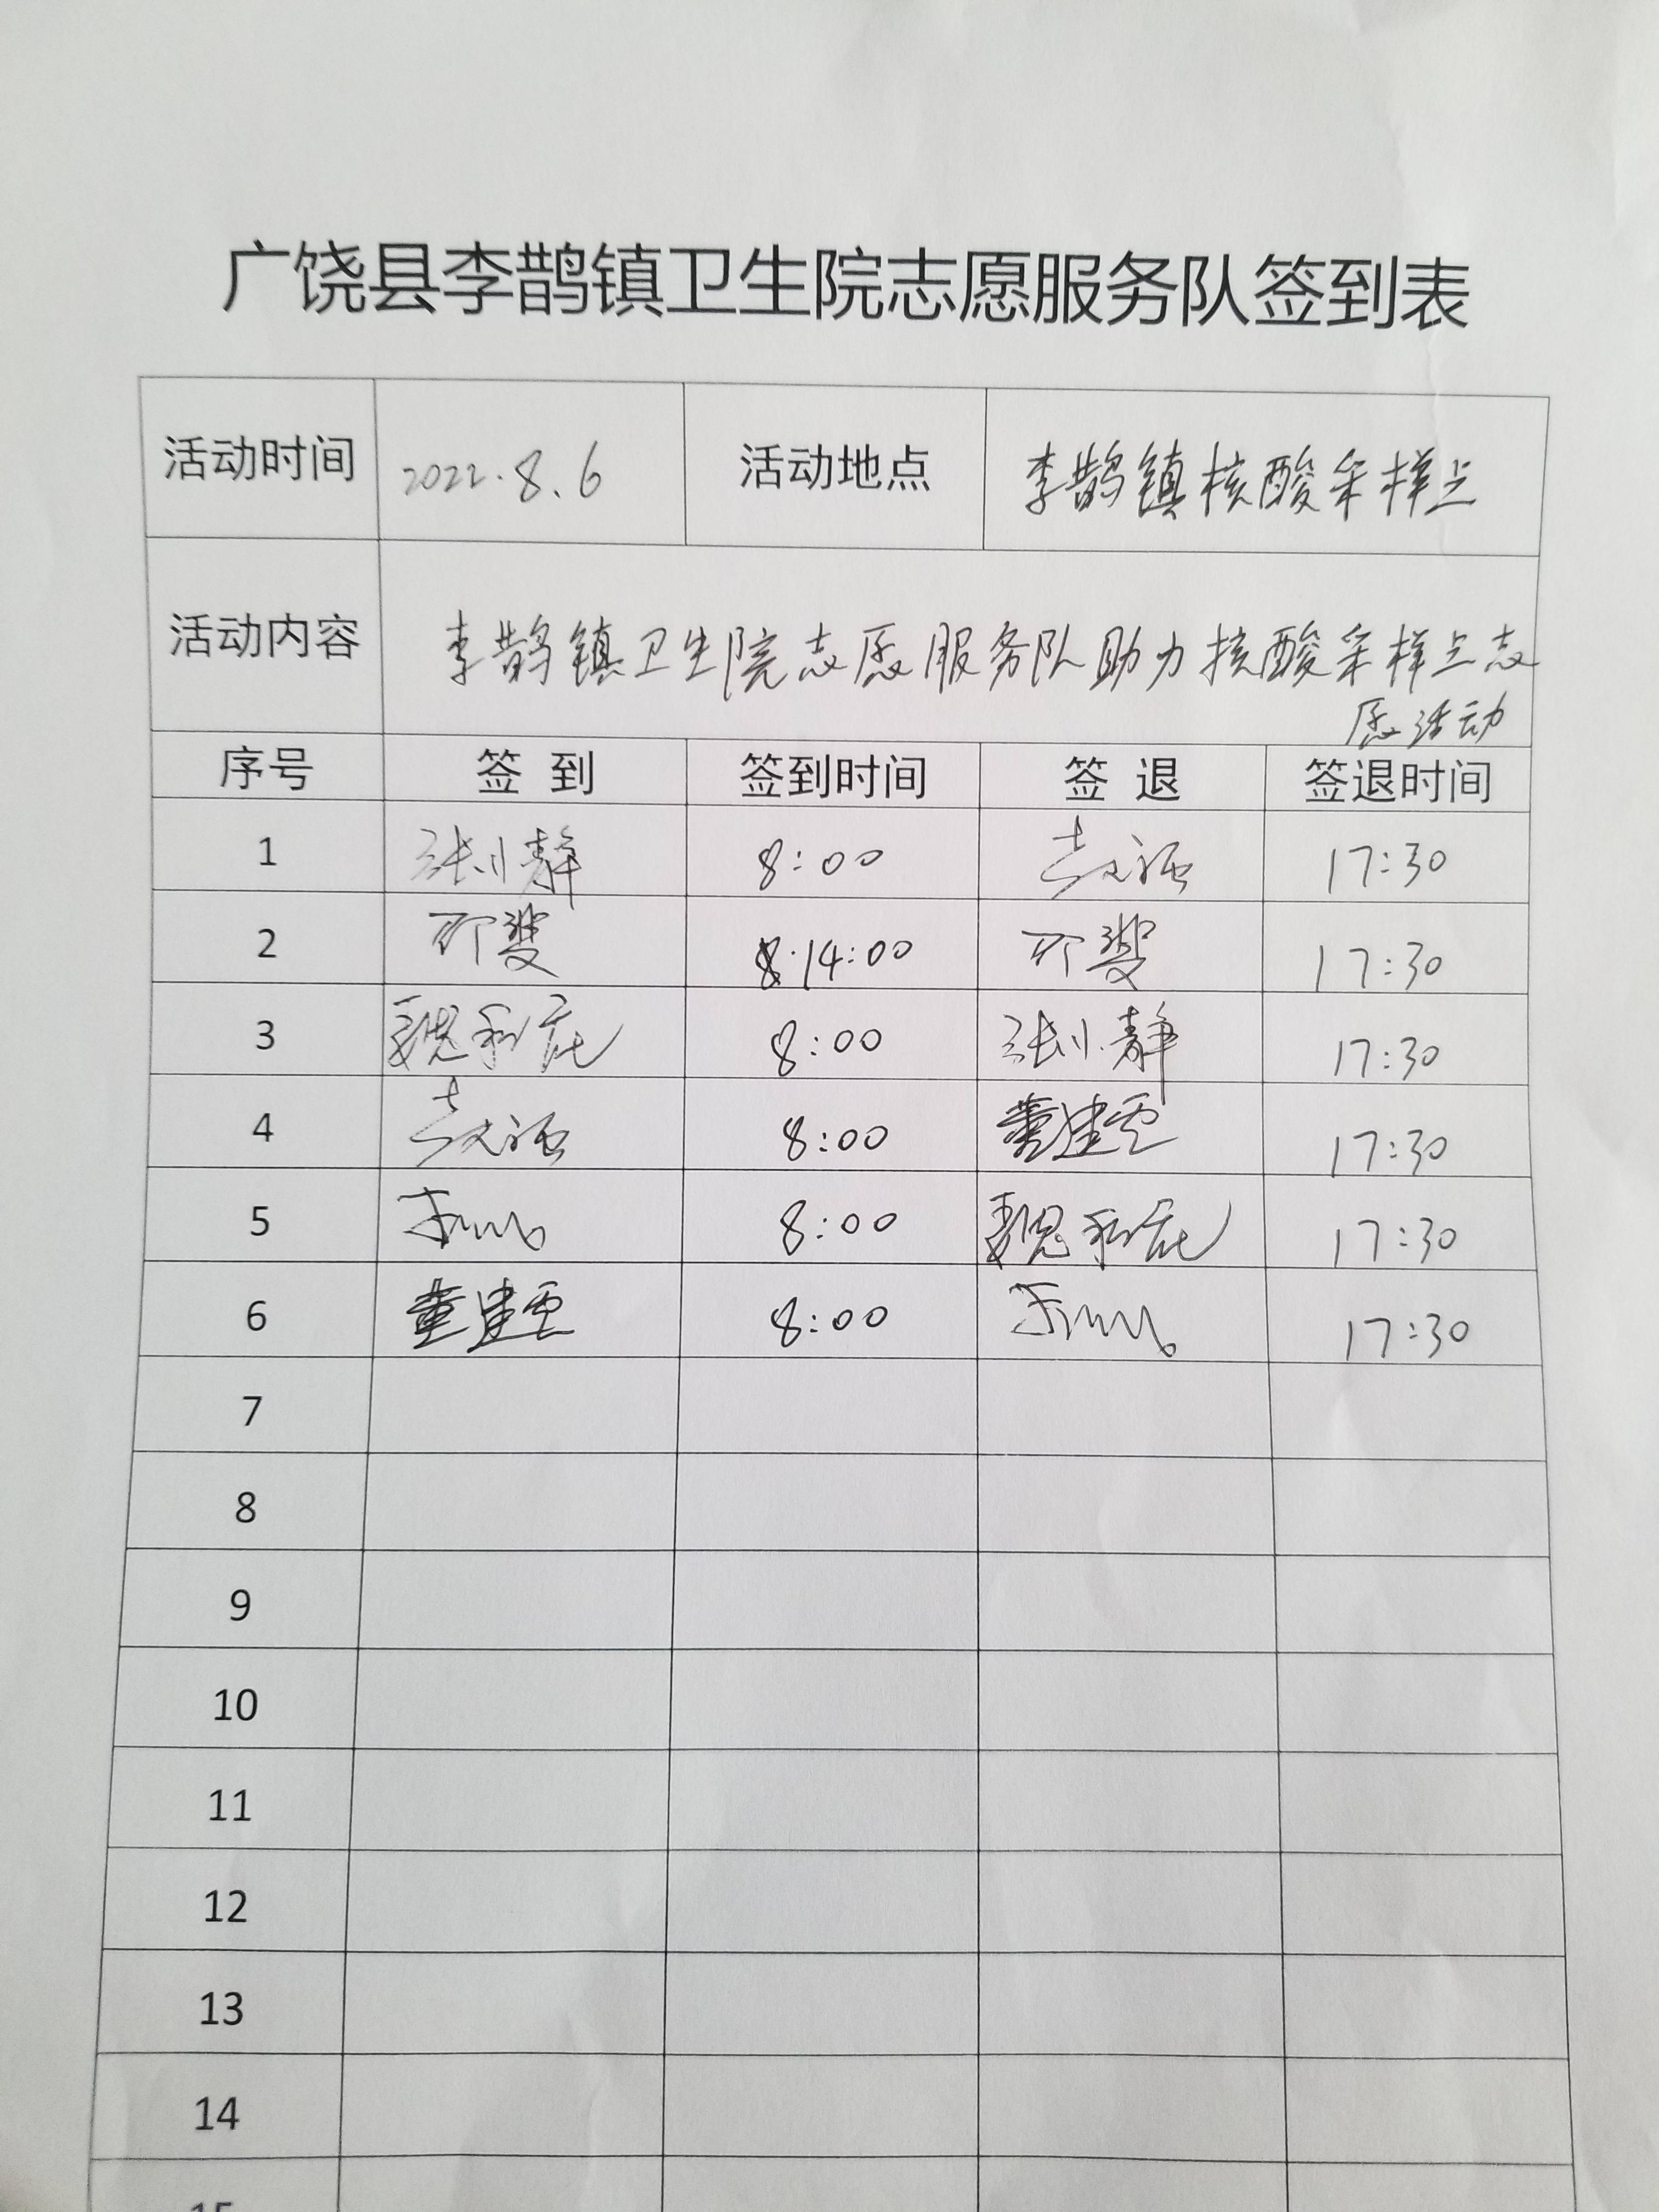 广饶县李鹊镇卫生院志愿服务队签到表
活动时间 2022.8.6 活动地点 李鹊镇核酸采样点
活动内容 李鹊镇卫生院志愿服务队助力核酸采样点志
愿活动
序号 签到 签到时间 签退 签退时间
1 张小静 8:00 17:30
2 14:00 17:30
3 8:00 张小静 17:30
4 8:00 17:30
5 8:00 17:30
6 8:00 17:30
7
8
9
10
11
12
13
14
15